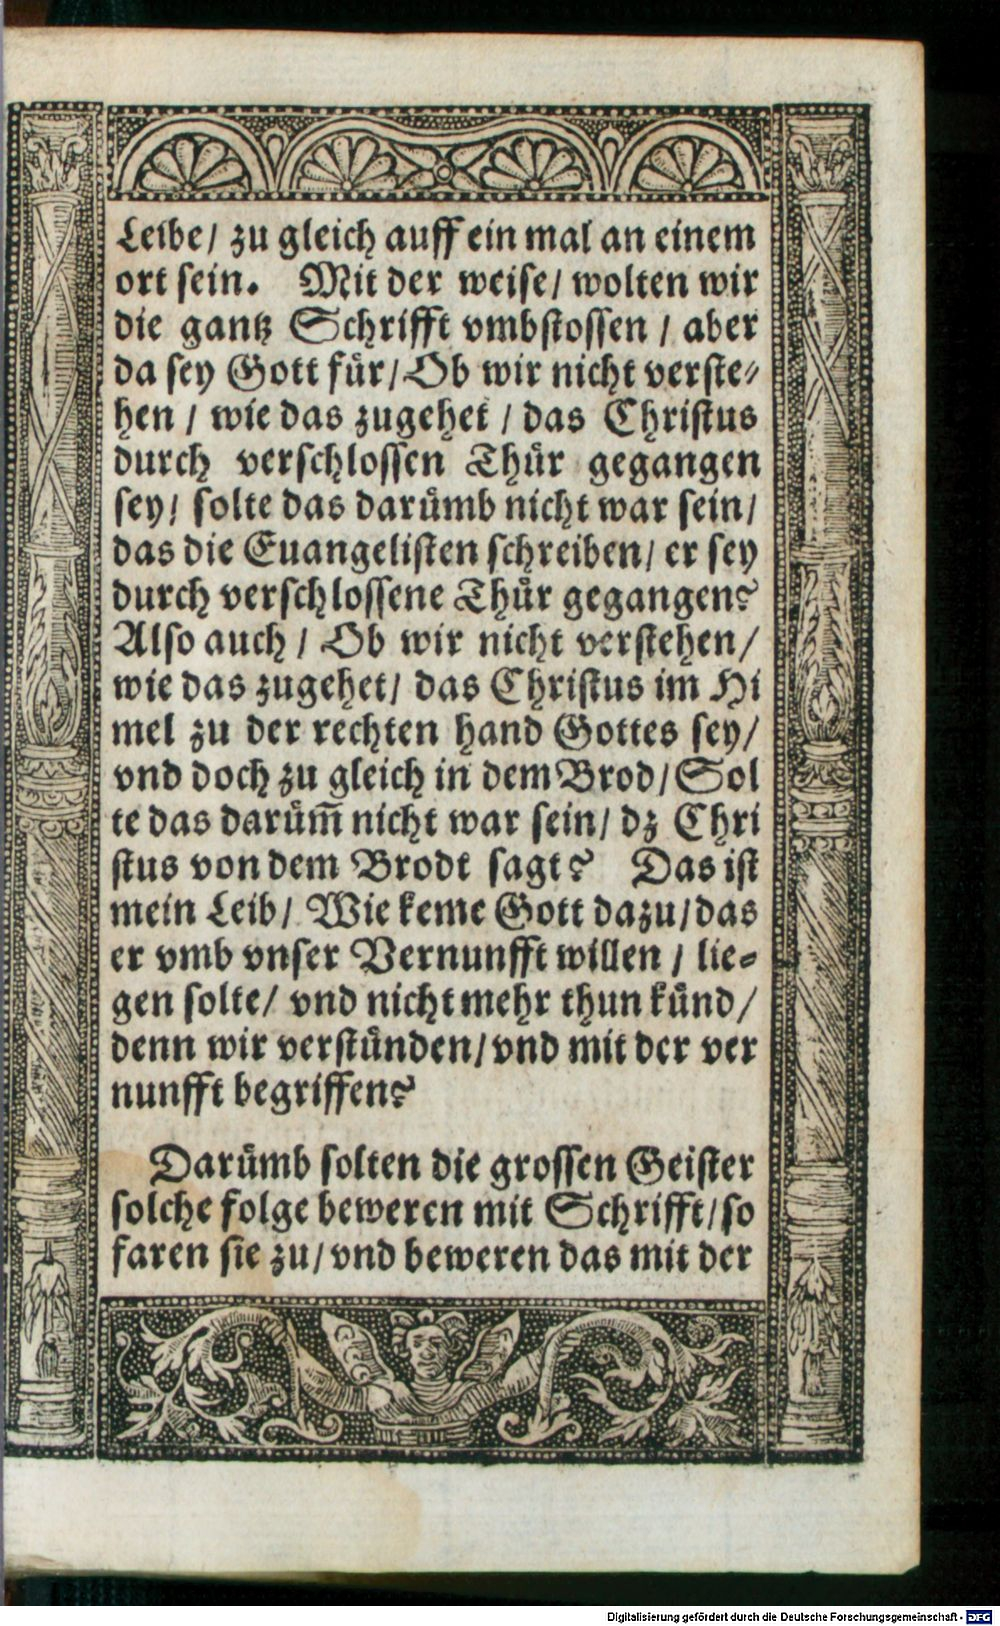 Leibe/ zu gleich auff ein mal an einem
ort sein. Mit der weise/ wolten wir
die gantz Schrifft vmbstossen / aber
da sey Gott für/ Ob wir nicht verste⸗
hen / wie das zugehet / das Christus
durch verschlossen Thür gegangen
sey/ solte das darümb nicht war sein/
das die Euangelisten schreiben/ er sey
durch verschlossene Thür gegangen?
Also auch / Ob wir nicht verstehen/
wie das zugehet/ das Christus im Hi
mel zu der rechten hand Gottes sey/
vnd doch zu gleich in dem Brod/ Sol
te das darüm̄ nicht war sein/ dz Chri
stus von dem Brodt sagt? Das ist
mein Leib/ Wie keme Gott dazu/ das
er vmb vnser Vernunfft willen / lie⸗
gen solte/ vnd nicht mehr thun künd/
denn wir verstünden/ vnd mit der ver
nunfft begriffen?
Darümb solten die grossen Geister
solche folge beweren mit Schrifft/ so
faren sie zu/ vnd beweren das mit der
Digitalisierung gefördert durch die Deutsche Forschungsgemeinschaft - DFG